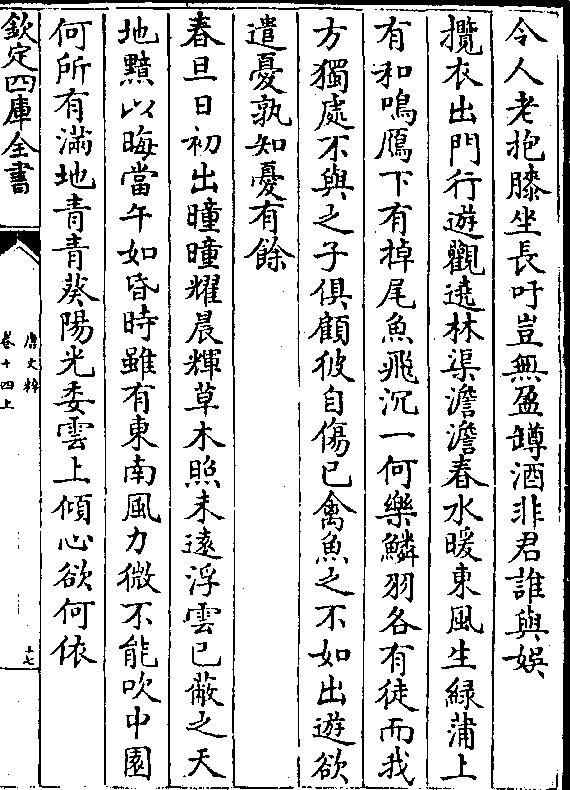 令人老抱膝坐長吁豈無盈罇酒非君誰與娛
攬衣出門行遊觀遶林渠澹澹春水暖東風生緑蒲上
有和鳴鴈下有掉尾魚飛沉一何樂鱗羽各有徒而我
方獨處不與之子俱顧彼自傷已禽魚之不如出遊欲
遣憂孰知憂有餘
春旦日初出曈曈耀晨輝草木照未遠浮雲已蔽之天
地黯以晦當午如昏時雖有東南風力微不能吹中園
何所有滿地青青葵陽光委雲上傾心欲何依
欽定四庫全書
唐文粹
卷十四上
十七